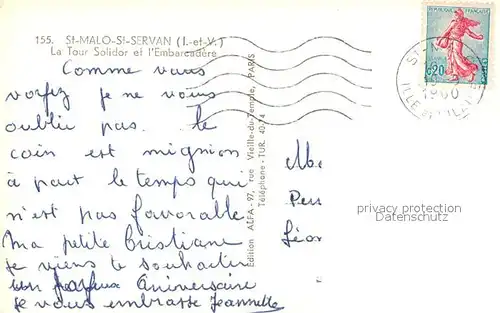 155. St-MALO-St-SERVAN (I.-et-V.)
La Tour Solidor et l'Embarcadère
Comme vous
voyez je ne vous
oublie pas. le
coin est mignion
à part le temps qui
n'est pas favorable
Ma petite Cristiane
je viens te souhaiter
Aniversaire
je vous embrasse Jeannette
Edition ALFA-97, rue Vieille-du-Temple, PARIS
Téléphone-TUR. 40-74
REPUBLIQUE FRANÇAISE
0,20
1960
ILLE ET VILAINE
privacy protection
Datenschutz